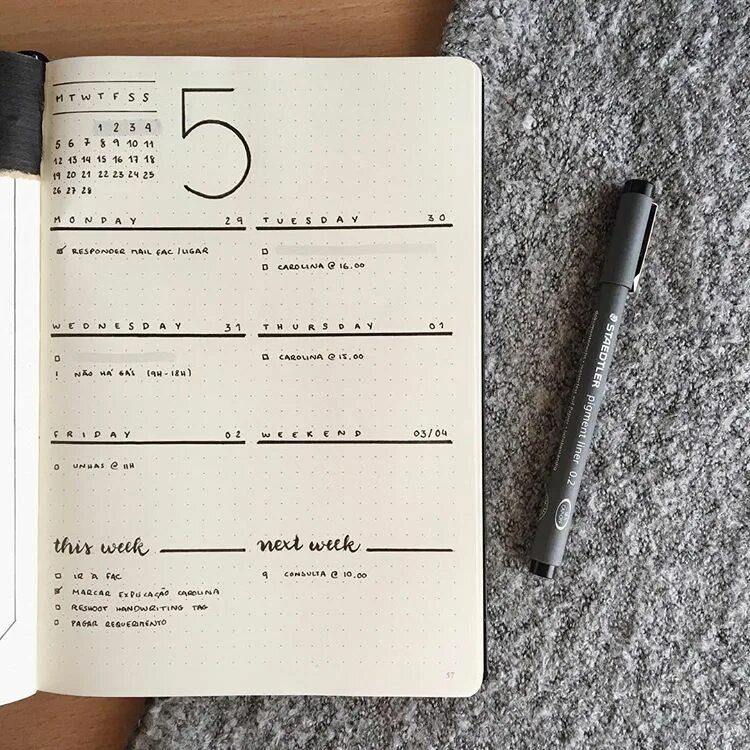 M T W T F S S
1 2 3 4
5 6 7 8 9 10 11
12 13 14 15 16 17 18
19 20 21 22 23 24 25
26 27 28
5
MONDAY 29
RESPONDER MAIL FAC /LIGAR
TUESDAY 30
CAROLINA @ 16.00
WEDNESDAY 31
! NÃO HÁ GÁS (9H-18H)
THURSDAY 01
CAROLINA @ 15.00
FRIDAY 02
UNHAS @ 11H
WEEKEND 03/04
this week
IR À FAC
MARCAR EXPLICAÇÃO CAROLINA
RESHOOT HANDWRITING TAG
PAGAR REQUERIMENTO
next week
9 CONSULTA @ 10.00
57
STAEDTLER
pigment liner 0.2